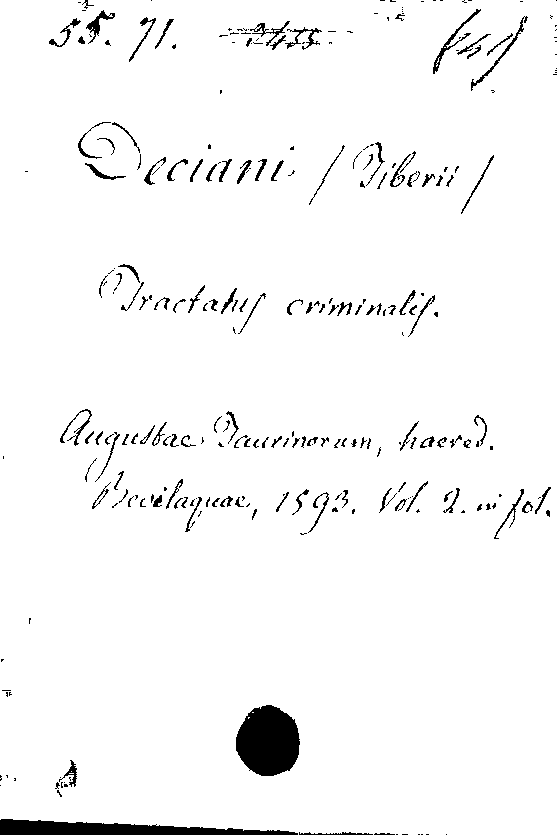 55. 71. 2455
Deciani / Tiberii /
Tractatus criminalis.
Augustae Taurinorum, haered.
Bevilaquae, 1593. Vol. 2. in fol.